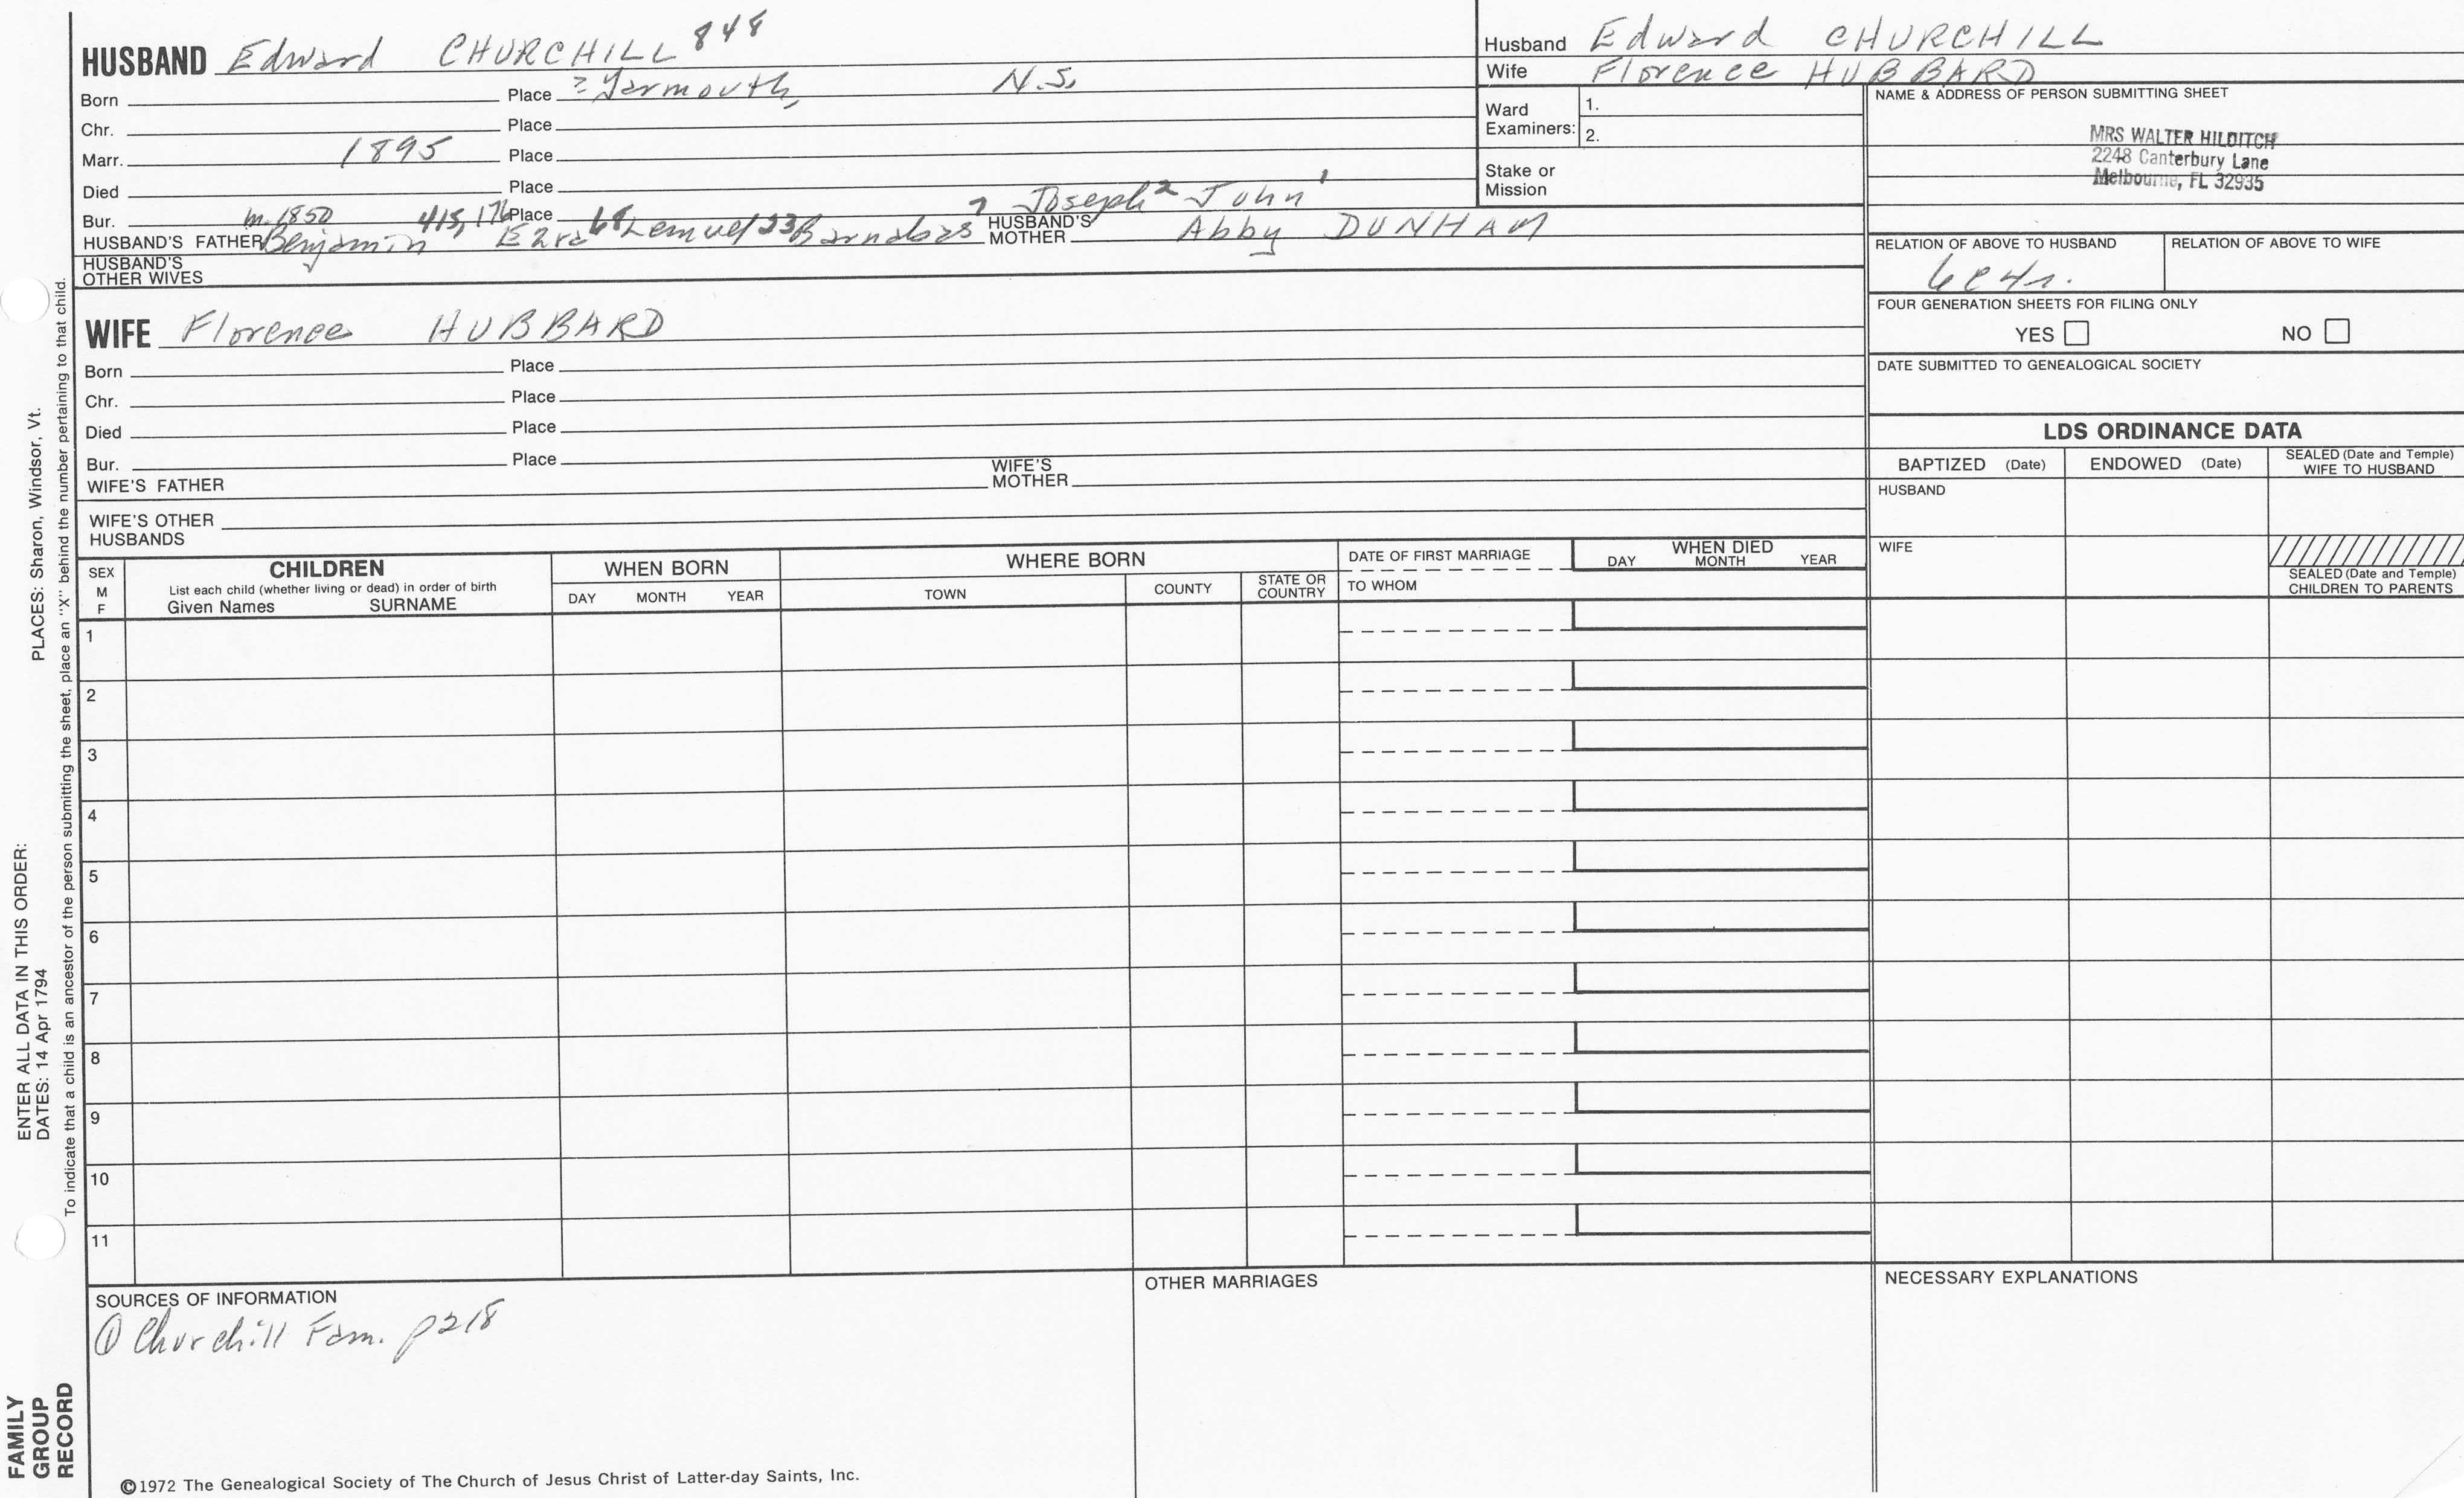 HUSBAND Edward CHURCHILL 848
Born Place ? Yarmouth, N.S.
Chr. Place
Marr. 1895 Place
Died Place
Bur. Place
m. 1850 415, 176 68 23 7 Joseph 2 John 1
HUSBAND'S FATHER Benjamin Ezra Lemuel Barnabas HUSBAND'S MOTHER Abby DUNHAM
HUSBAND'S OTHER WIVES
WIFE Florence HUBBARD
Born Place
Chr. Place
Died Place
Bur. Place
WIFE'S FATHER WIFE'S MOTHER
WIFE'S OTHER HUSBANDS
Husband Edward CHURCHILL
Wife Florence HUBBARD
Ward Examiners: 1.
2.
Stake or Mission
NAME & ADDRESS OF PERSON SUBMITTING SHEET
MRS WALTER HILDITCH
2248 Canterbury Lane
Melbourne, FL 32935
RELATION OF ABOVE TO HUSBAND RELATION OF ABOVE TO WIFE
6c4r.
FOUR GENERATION SHEETS FOR FILING ONLY
YES NO
DATE SUBMITTED TO GENEALOGICAL SOCIETY
LDS ORDINANCE DATA
BAPTIZED (Date) ENDOWED (Date) SEALED (Date and Temple) WIFE TO HUSBAND
HUSBAND
WIFE
SEALED (Date and Temple) CHILDREN TO PARENTS
SEX M F
CHILDREN
List each child (whether living or dead) in order of birth
Given Names SURNAME
WHEN BORN
DAY MONTH YEAR
WHERE BORN
TOWN COUNTY STATE OR COUNTRY
DATE OF FIRST MARRIAGE
TO WHOM
WHEN DIED
DAY MONTH YEAR
1
2
3
4
5
6
7
8
9
10
11
SOURCES OF INFORMATION
① Churchill Fam. p218
OTHER MARRIAGES
NECESSARY EXPLANATIONS
©1972 The Genealogical Society of The Church of Jesus Christ of Latter-day Saints, Inc.
FAMILY GROUP RECORD
ENTER ALL DATA IN THIS ORDER:
DATES: 14 Apr 1794 PLACES: Sharon, Windsor, Vt.
To indicate that a child is an ancestor of the person submitting the sheet, place an "X" behind the number pertaining to that child.